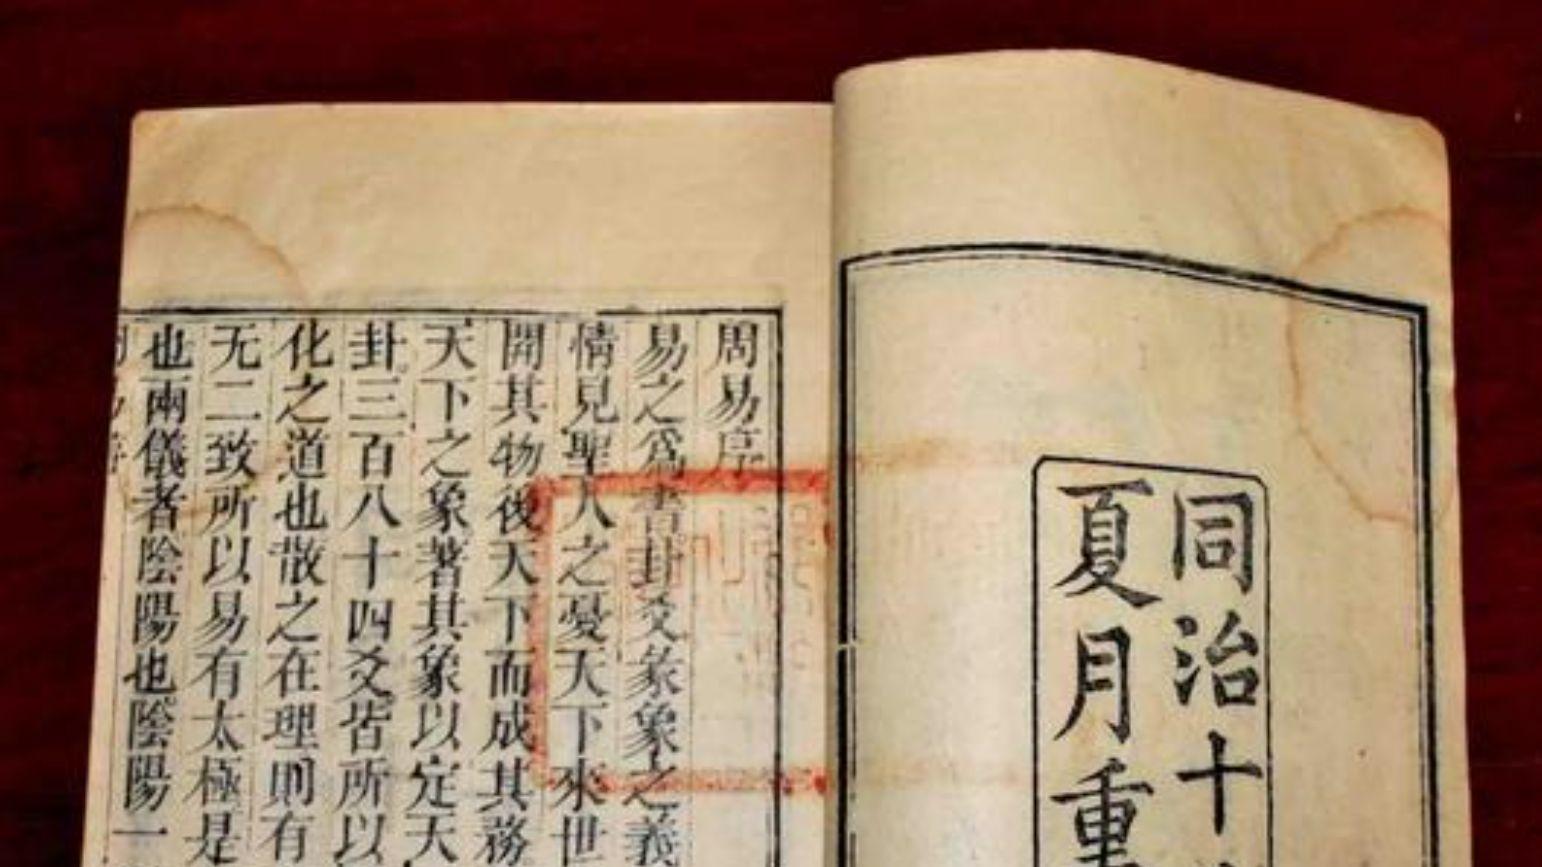 同治十
夏月重
周易序
易之爲書卦爻彖象之義
情見聖人之憂天下來世
開其物後天下而成其務
天下之象著其象以定天
卦三百八十四爻皆所以
化之道也散之在理則有
无二致所以易有太極是
也兩儀者陰陽也陰陽一